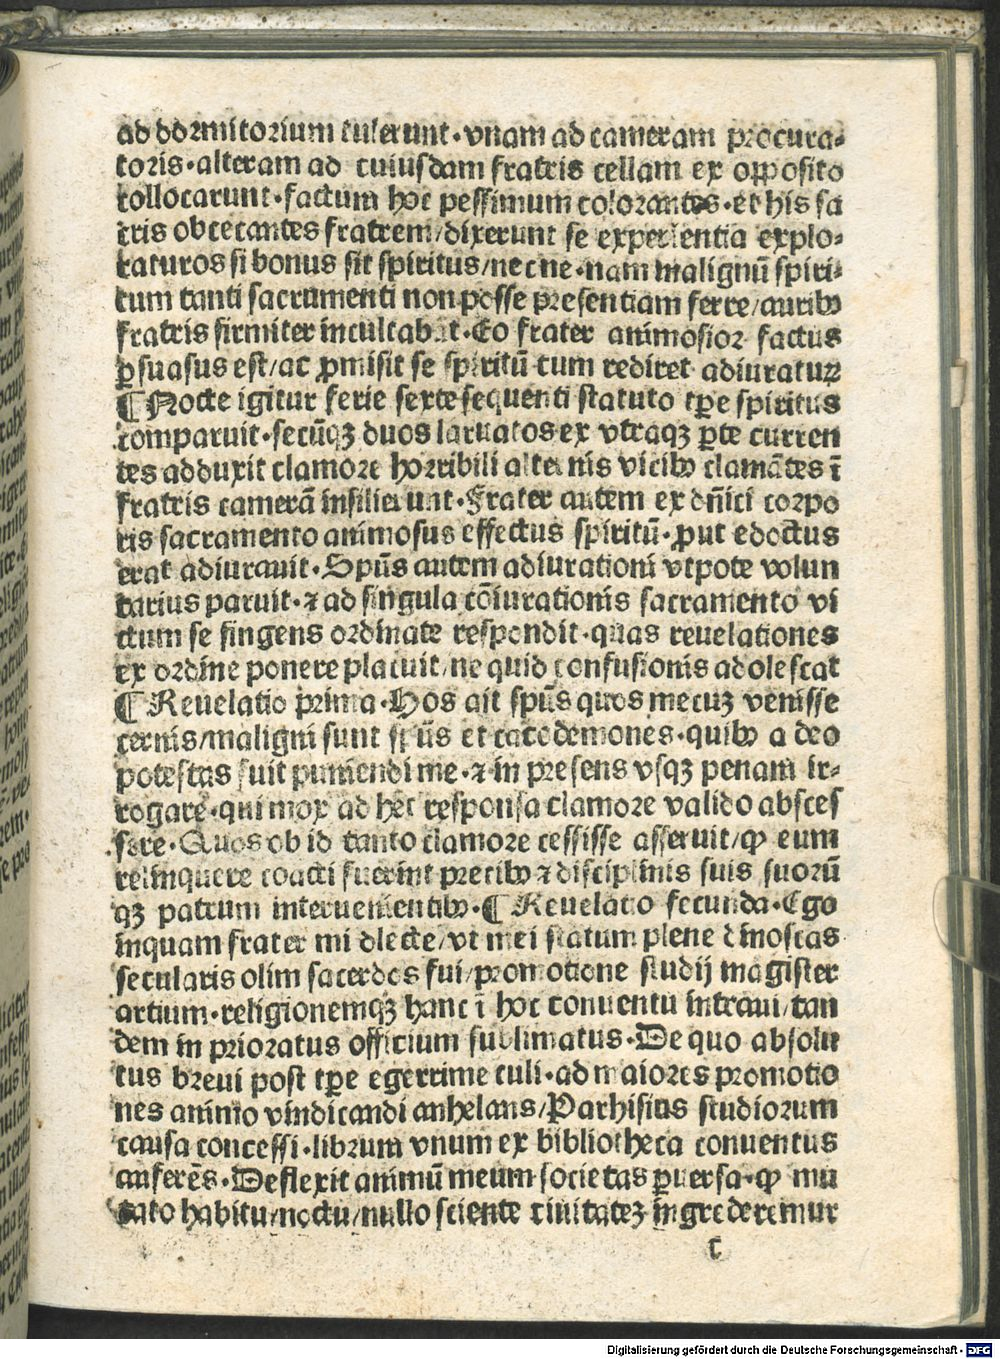 ad dormitorium tulerunt·vnam ad cameram procura-
toris·alteram ad cuiusdam fratris cellam ex opposito
collocarunt·factum hoc pessimum colorantes·et his sa
cris obcecantes fratrem/dixerunt se experientia explo-
raturos si bonus sit spiritus/nec ne·nam malignū spiri-
tum tanti sacramenti non posse presentiam ferre/auribꝰ
fratris firmiter incultabāt·Eo frater animosior factus
ꝑsuasus est/ac ꝓmisit se spiritū cum rediret adiuraturꝝ
¶Nocte igitur ferie sexte sequenti statuto tꝑe spiritus
comparuit·secūqꝫ duos laruatos ex vtraqꝫ ꝑte curren
tes adduxit clamore horribili alternis vicibꝰ clamātes ī
fratris camerā insilierunt·Frater autem ex dn̄ici corpo
ris sacramento animosus effectus spiritū·ꝓut edoctus
erat adiurauit·Spūs autem adiurationi vtpote volun
tarius paruit·⁊ ad singula cōiurationis sacramento vi
ctum se fingens ordinate respondit·quas reuelationes
ex ordine ponere placuit/ne quid confusionis adolescat
¶Reuelatio prima·Hos ait spūs quos mecuꝫ venisse
cernis/maligni sunt spūs et cacodemones·quibꝰ a deo
potestas fuit puniendi me·⁊ in presens vsqꝫ penam ir-
rogare·qui mox ad hec responsa clamore valido absces
sere·Quos ob id tanto clamore cessisse asseruit/ꝙ eum
relinquere coacti fuerint precibꝰ ⁊ disciplinis suis suorū
qꝫ patrum interuenientibꝰ·¶Reuelatio secunda·Ego
inquam frater mi dlecte/vt mei statum plene dinoscas
secularis olim sacerdos fui/promotione studij magister
artium·religionemqꝫ hanc ī hoc conuentu intraui/tan
dem in prioratus officium sublimatus·De quo absolu
tus breui post tꝑe egerrime tuli·ad maiores promotio
nes animo vindicandi anhelans/Parhisius studiorum
causa concessi·librum vnum ex bibliotheca conuentus
auferēs·Deflexit animū meum societas ꝑuersa·ꝙ mu
tato habitu/noctu/nullo sciente ciuitateꝫ ingrederemur
c
Digitalisierung gefördert durch die Deutsche Forschungsgemeinschaft - DFG